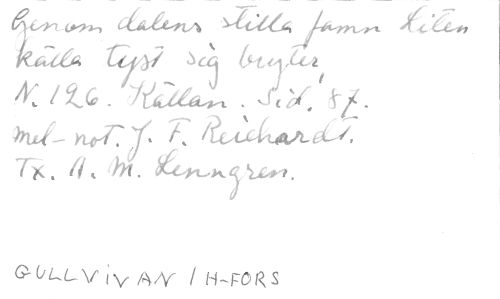 Genom dalens stilla famn liten
källa tyst sig bryter,
N. 126. Källan. Sid. 87.
mel-not. J. F. Reichardt.
Tx. A. M. Lenngren.
GULLVIVAN / H-FORS